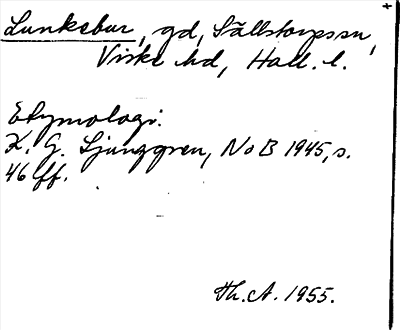 Lunkebur, gd, Sällstorps sn,
Viske hd, Hall. l.
Etymologi.
K. G. Ljunggren, NoB 1945, s.
46 ff.
Th. A. 1955.